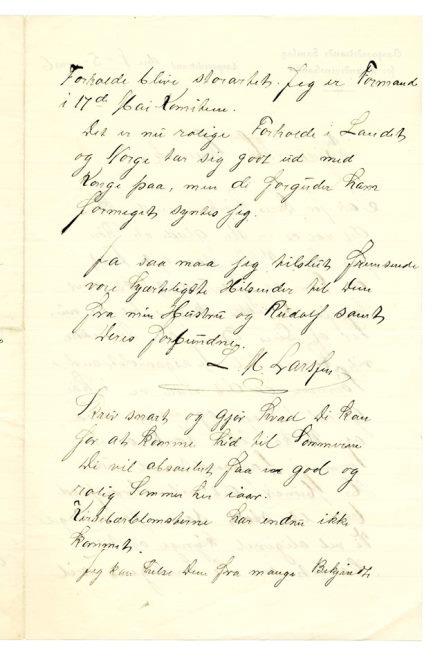 Forholde blive storartet. Jeg er Formand
i 17de Mai Komiteen.
Det er nu rolige Forholde i Landet
og Norge tar sig godt ud med
Konge paa, men de forguder ham
formeget syntes jeg.
Ja saa maa jeg tilslut fremsende
vore hjærteligste Hilsener til Dem
fra min Hustru og Rudolf samt
Deres forbundne
M. Larssen
Skriv snart og gjør hvad De kan
for at komme hid til Sommeren
De vil absolut faa en god og
rolig Sommer her iaar.
Kirsebærblomsterne har endnu ikke
kommet.
Jeg kan hilse Dem fra mange Bekjendte